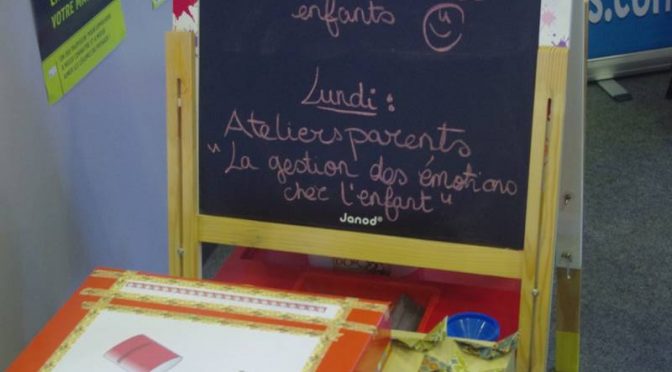 VOTRE MA
s.com
enfants
Lundi :
Ateliers parents
"La gestion des émotions
chez l'enfant"
Janod®